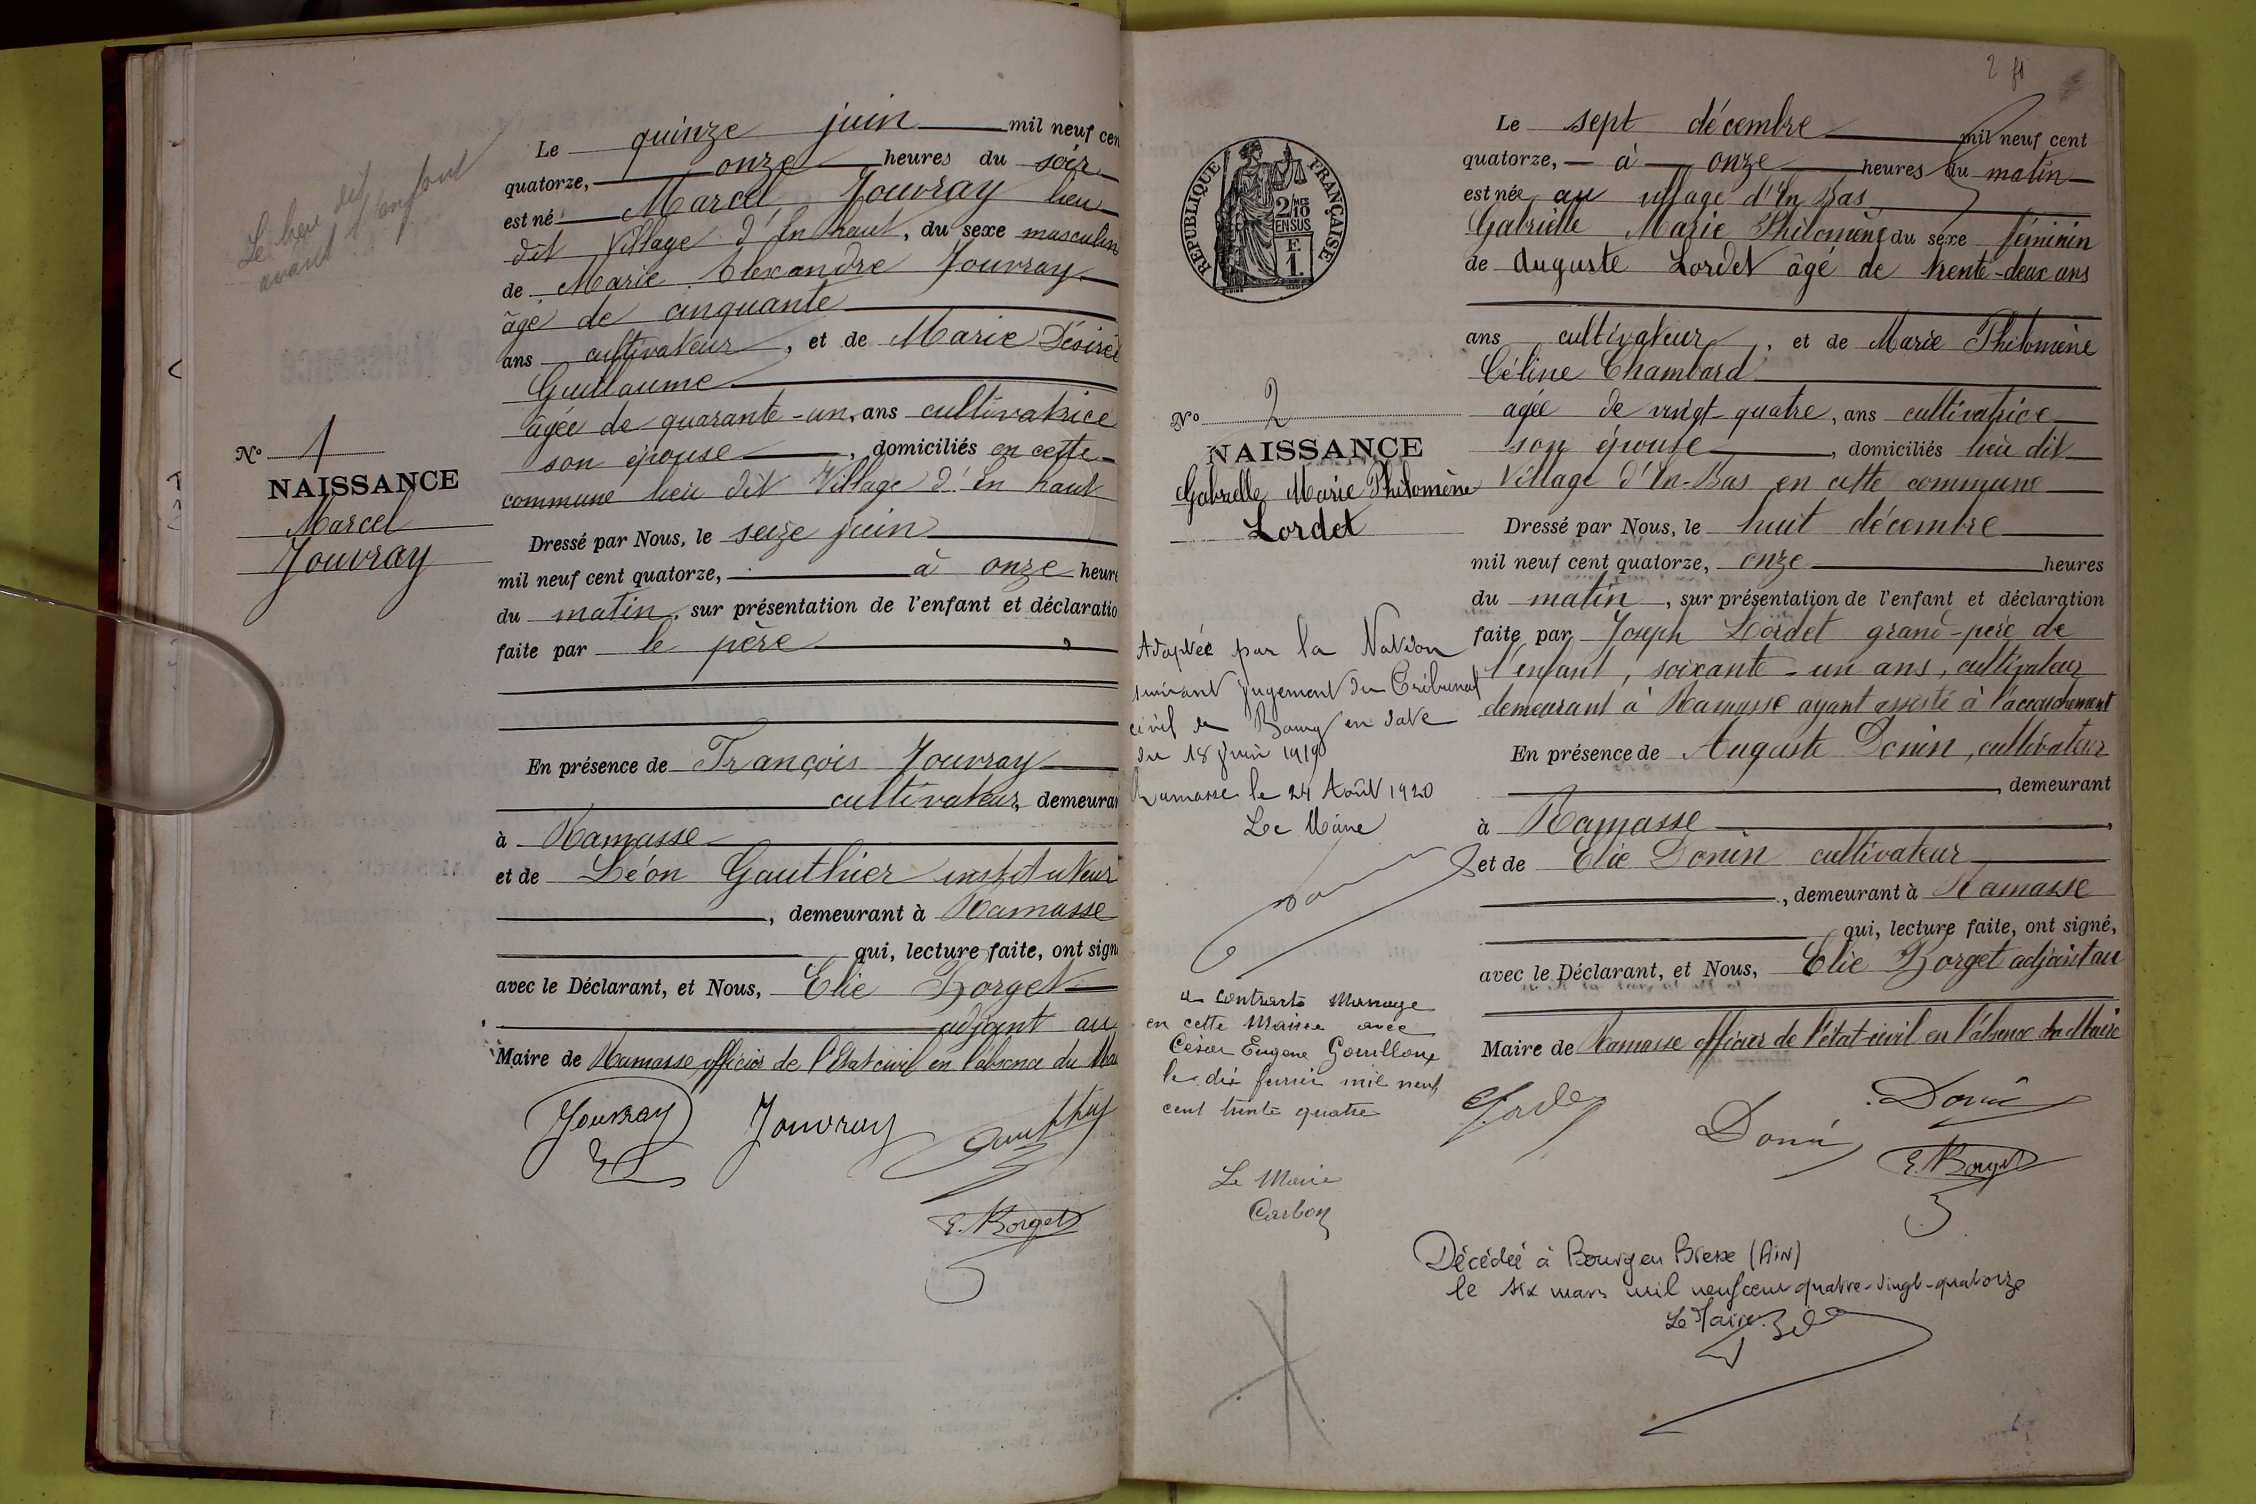 Le lieu dit
avant l'enfant
N° 1
NAISSANCE
Marcel
Jouvray
Le quinze juin mil neuf cen
quatorze, onze heures du soir
est né Marcel Jouvray lieu
dit Village d'En haut, du sexe masculin
de Marie Alexandre Jouvray
âgé de cinquante
ans cultivateur, et de Marie Désirée
Guillaume
âgée de quarante-un, ans cultivatrice
son épouse, domiciliés en cette
commune lieu dit Village d'En haut
Dressé par Nous, le seize juin
mil neuf cent quatorze, à onze heure
du matin, sur présentation de l'enfant et déclaratio
faite par le père,
En présence de François Jouvray
cultivateur, demeuran
à Ramasse
et de Léon Gauthier instituteur
, demeurant à Ramasse
qui, lecture faite, ont sign
avec le Déclarant, et Nous, Elie Borget
adjoint au
Maire de Ramasse, officier de l'Etat civil en l'absence du Ma
Jouvray Jouvray Gauthier
E. Borget
2 f1
RÉPUBLIQUE FRANÇAISE
2/10 MES
EN SUS
F.
1.
N° 2
NAISSANCE
Gabrielle Marie Philomène
Lordet
Adoptée par la Nation
suivant jugement du Tribunal
civil de Bourg en date
du 18 juin 1919
Ramasse le 24 Août 1920
Le Maire
a contracté mariage
en cette Mairie avec
César Eugène Gouilloux
le dix février mil neuf
cent trente quatre
Le Maire
Carbon
Le sept décembre mil neuf cent
quatorze, à onze heures du matin
est née au village d'En Bas
Gabrielle Marie Philomène du sexe féminin
de Auguste Lordet âgé de trente-deux ans
ans cultivateur, et de Marie Philomène
Céline Chambard
agée de vingt-quatre, ans cultivatrice
son épouse, domiciliés lieu dit
Village d'En-Bas en cette commune
Dressé par Nous, le huit décembre
mil neuf cent quatorze, onze heures
du matin, sur présentation de l'enfant et déclaration
faite par Joseph Lordet grand-père de
l'enfant, soixante-un ans, cultivateur
demeurant à Ramasse ayant assisté à l'accouchement
En présence de Auguste Donin, cultivateur
, demeurant
à Ramasse,
et de Elie Donin cultivateur
, demeurant à Ramasse
qui, lecture faite, ont signé,
avec le Déclarant, et Nous, Elie Borget adjoint au
Maire de Ramasse officier de l'état-civil en l'absence du Maire
Lordet Donin Donin
E. Borget
Décédée à Bourg en Bresse (AIN)
le six mars mil neuf cent quatre-vingt-quatorze
Le Maire